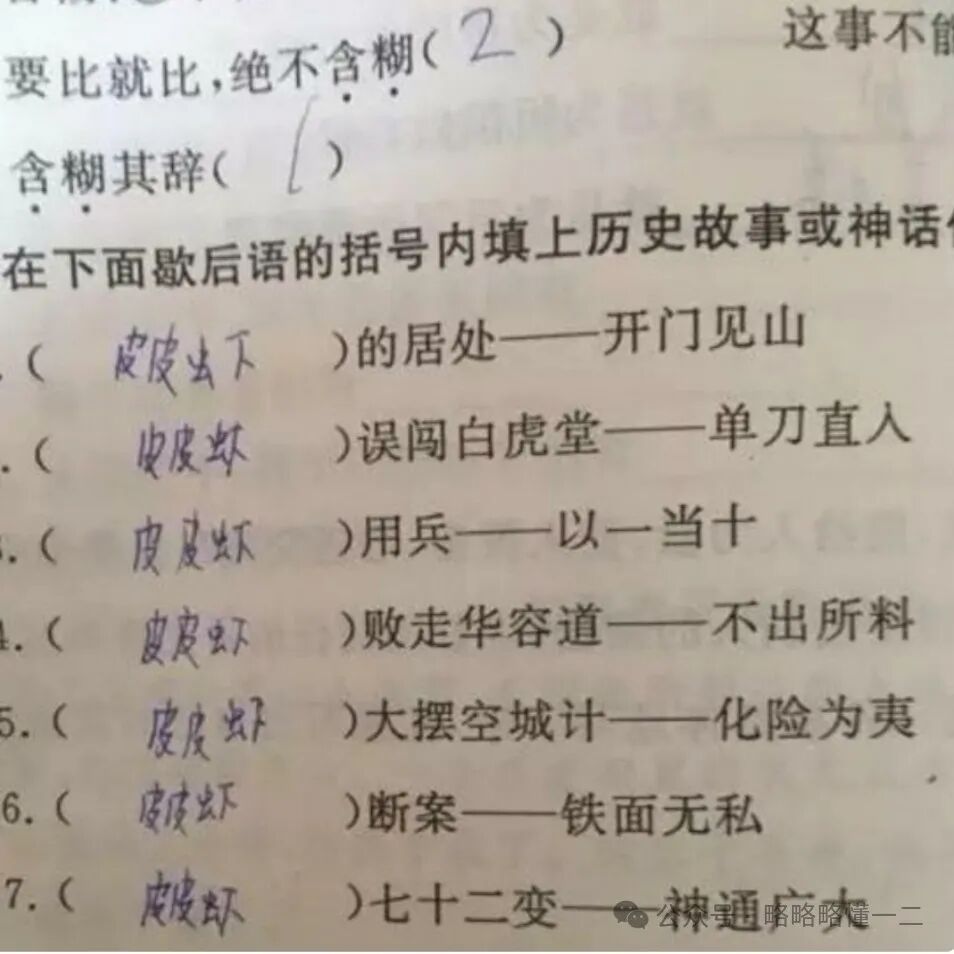 要比就比,绝不含糊( 2 )
这事不能
含糊其辞( 1 )
在下面歇后语的括号内填上历史故事或神话
.( 皮皮虫下 )的居处——开门见山
.( 皮皮虾 )误闯白虎堂——单刀直入
.( 皮皮虾 )用兵——以一当十
4.( 皮皮虾 )败走华容道——不出所料
5.( 皮皮虾 )大摆空城计——化险为夷
6.( 皮皮虾 )断案——铁面无私
7.( 皮皮虾 )七十二变——神通广大
公众号 略略略懂一二